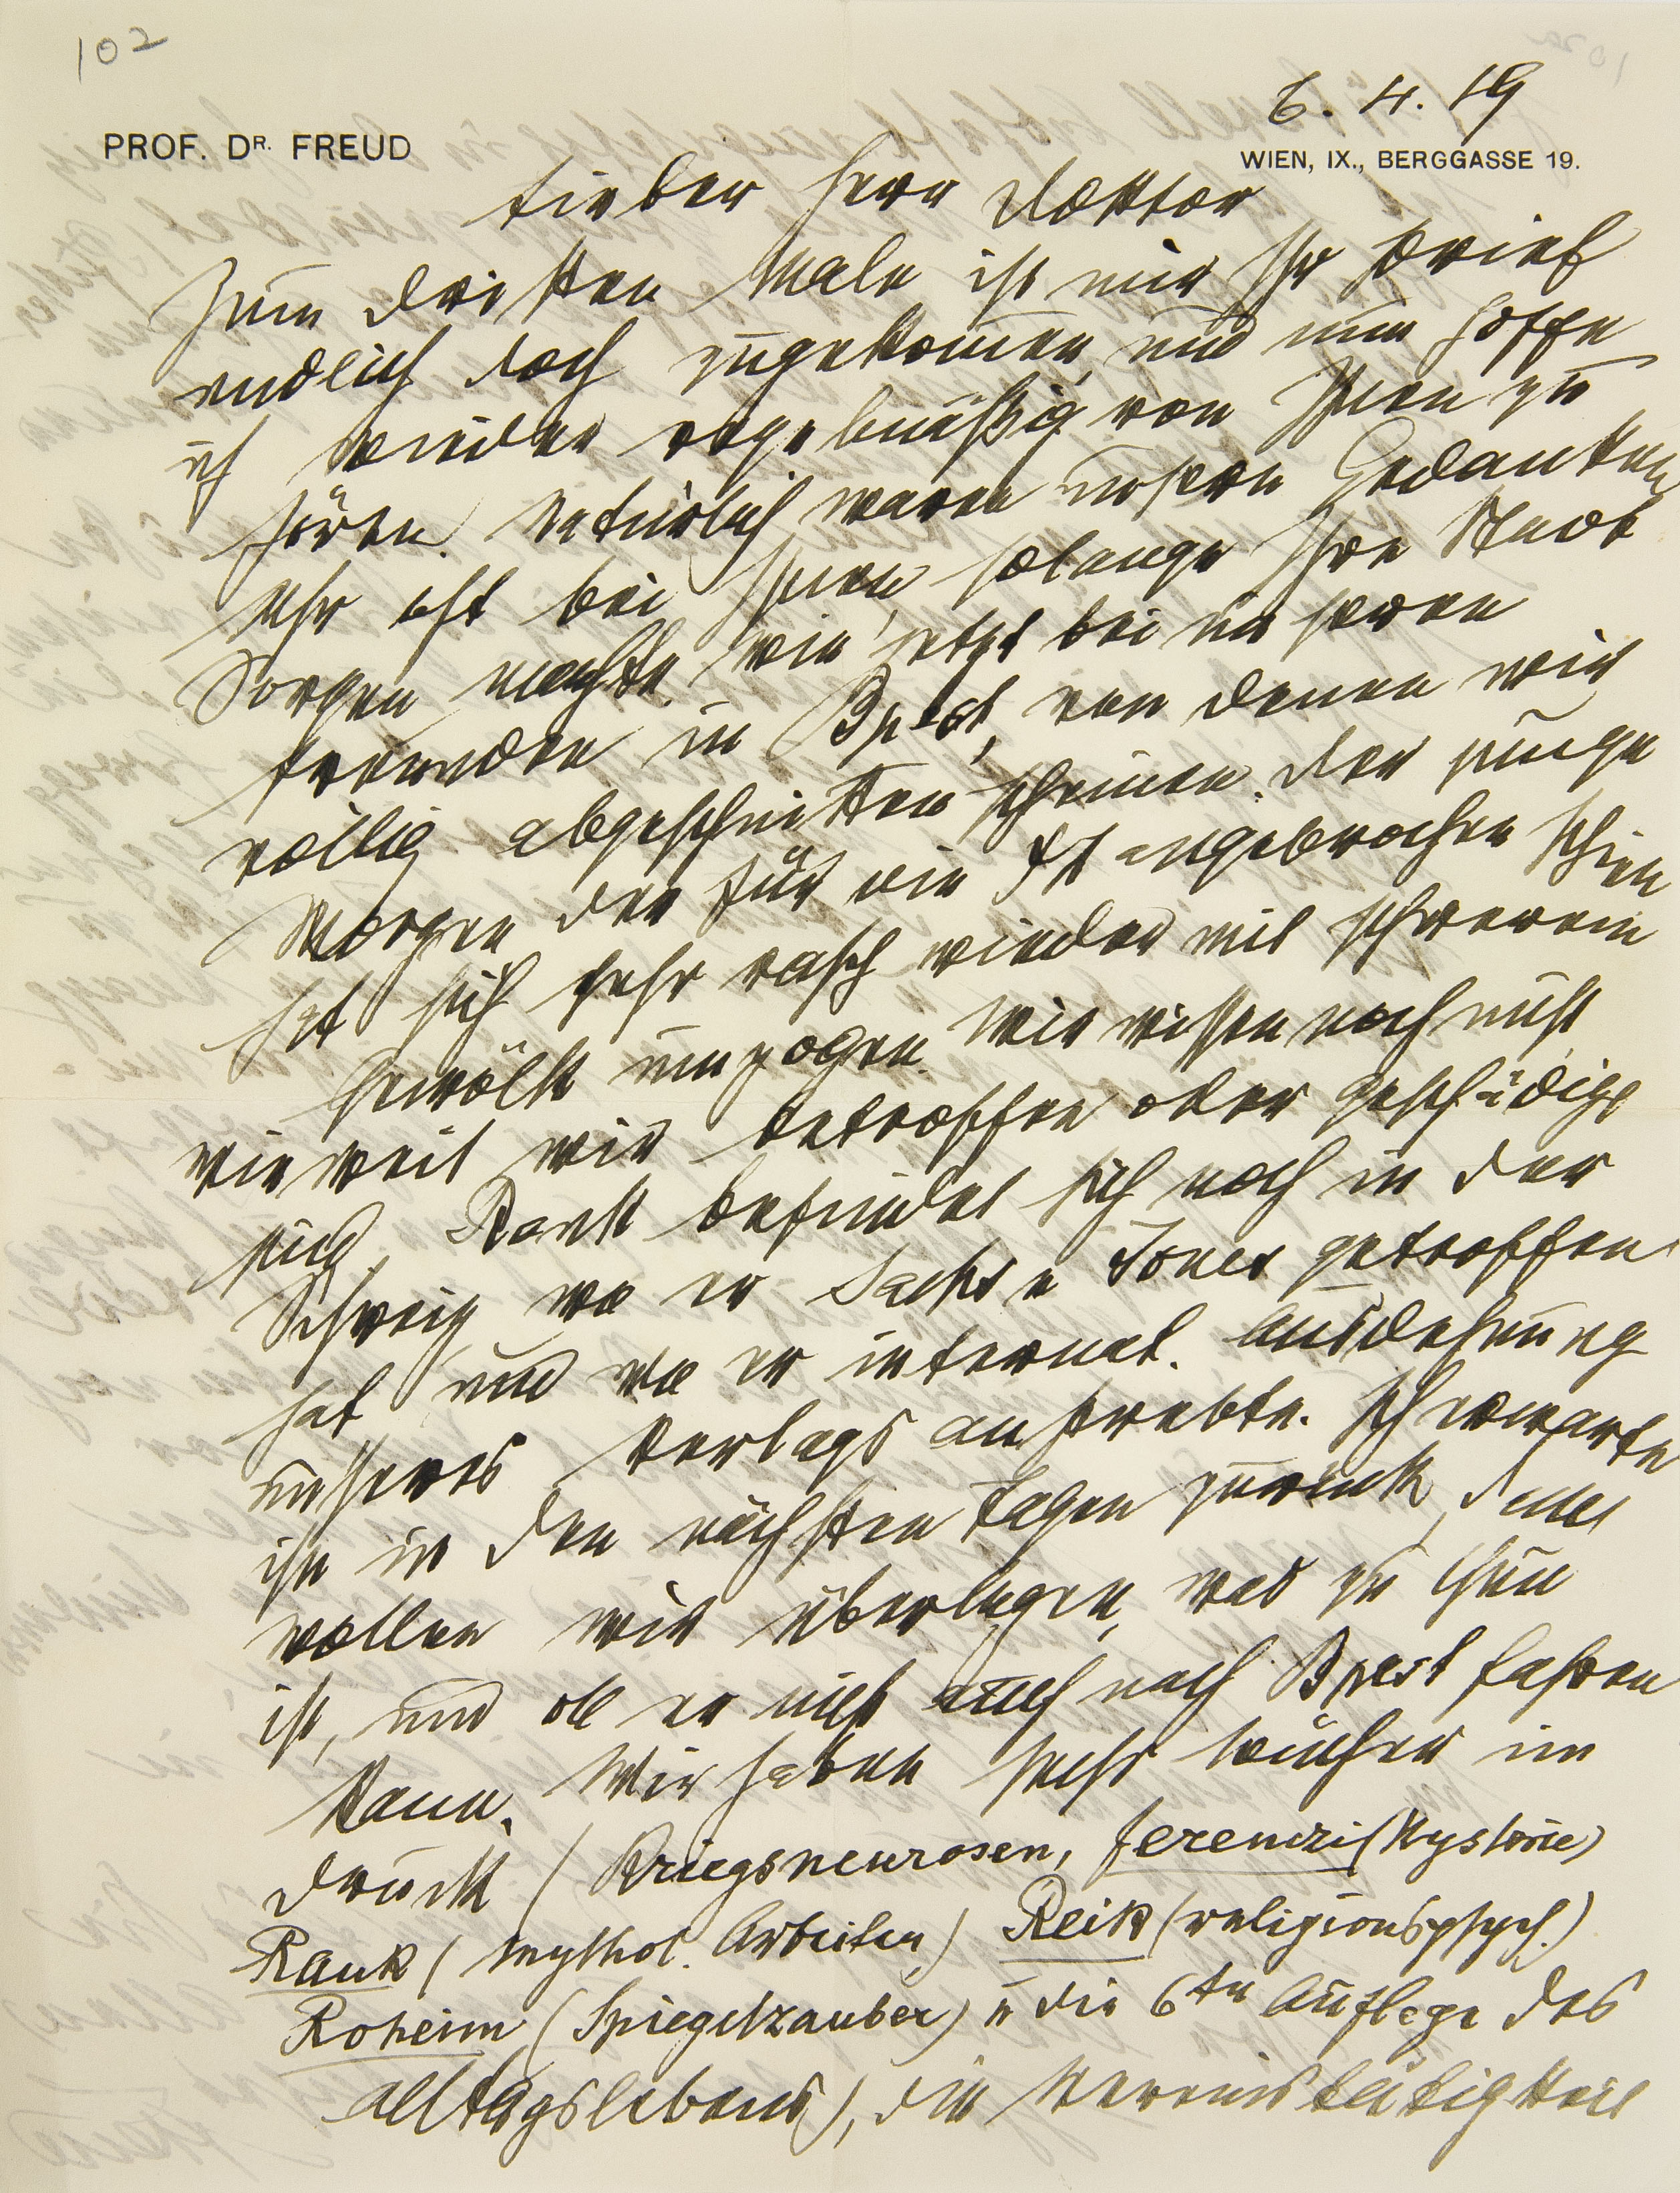 102
6. 4. 19
PROF. DR. FREUD
WIEN, IX., BERGGASSE 19.
Lieber Herr Doktor
Zum dritten Male ist mir Ihr Brief
endlich doch zugekommen, und nun hoffe
ich wieder regelmäßig von Ihnen zu
hören. Natürlich waren unsere Gedanken
sehr oft bei Ihnen solange Ihre Stadt
Sorgen machte, wie jetzt bei unseren
Freunden in Bpest, von denen wir
völlig abgeschnitten scheinen. Der junge
Morgen der für die ΨA angebrochen schien
hat sich sehr rasch wieder mit schwerem
Gewölk umzogen. Wir wissen noch nicht,
wieweit wir betroffen oder geschädigt
sind. Rank befindet sich noch in der
Schweiz, wo er Sachs u Jones getroffen
hat und wo er internat. Ausdehnung
unseres Verlags anstrebte. Ich erwarte
ihn in den nächsten Tagen zurück, dann
wollen wir überlegen, was zu thun
ist, und ob er nicht auch nach Bpest fahren
kann. Wir haben sechs Bücher im
Druck (Kriegsneurosen, Ferenczi (Hysterie)
Rank (Mythol. Arbeiten) Reik (religionspsych.)
Roheim (Spiegelzauber) u die 6te Auflage des
Alltagslebens), die Vereinstätigkeit